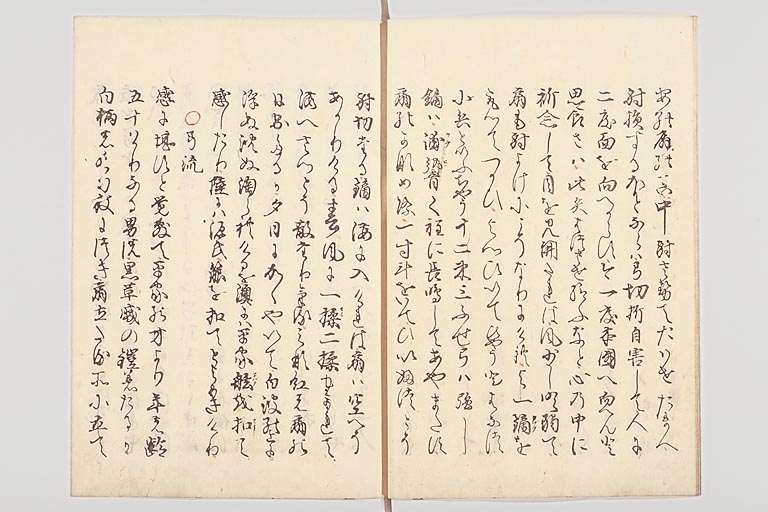 あの扇の真中射させてたはせたまへ
射損する物ならは弓切折自害して人に
二度面を向へからす今一度本国へ向へんと
思食さは此矢はつさせ給ふなと心の中に
祈念して目を見開たれは風少し吹弱て
扇も射よけにこそなりにけれ与一鏑を
取てつかひよつひいてひやうとはなつ
小兵といふちやう十二束三ふせ弓は強し
鏑は浦響く程に長鳴してあやまたす
扇のかなめ際一寸斗をいてひいふつとそ
射切たる鏑は海に入けれは扇は空へそ
あかりける春風に一揉二揉もまれて
海へさつとそ散たりける皆紅の扇の
日出したるか夕日にかゝやいて白波の上に
浮ぬ沈ぬ淘られけるを澳には平家舷を扣て
感したり陸には源氏箙を扣てとよめきけり
○弓流
感に堪すと覚敷て平家の方より年の齢
五十はかりなる男の黒革威の鎧着たるか
白柄の長刀杖につき扇立たる所に立て